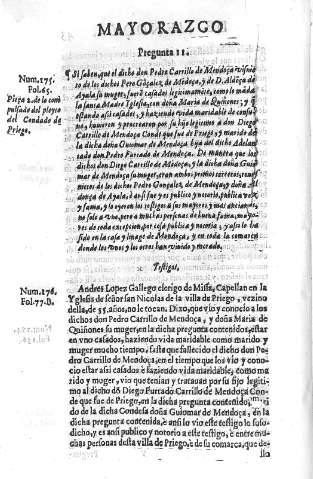 MAYORAZGO
Pregunta 11.
Num. 275.
Fol. 65.
Pieza 2. de lo com
pulsado del pleyto
del Condado de
Priego.
Si saben, que el dicho don Pedro Carrillo de Mendoça
de los dichos Pero Gõçalez, de Mẽdoça, y de D. Aldõça de
Ayala su muger, fuerõ casados legitimamente, como lo mãda
la santa Madre Iglesia, con doña Maria de Quiñones; y
estando assi casados, y haziendo vida maridable de consu
no, huuieron y procrearon por su hijo legitimo a don Diego
Carrillo de Mendoça Conde que fue de Priego, y marido de
la dicha doña Guiomar de Mendoça hija del dicho Adelan
tado don Furtado de Mendoça. De manera que los
dichos don Diego Carrillo de Mẽdoça, y la dicha doña Guio
mar de Mendoça su muger, eran ambos primos
nietos de los dichos Pedro Gonçalez, de Mendoça, y doña Al
dõça de Ayala, è assi fue y es publico y notorio, publica voz
y fama, y lo oyeron los testigos a sus mayores y mas ancianos,
no solo a vno, pero a muchas personas de buena fama, mayo
res de toda excepcion, por cosa publica y notoria, y assi lo fue
sido en la casa y linage de Mendoça, y en toda la comarca
donde los vnos y los otros han viuido y morado.
Testigos,
Num. 276.
Fol. 77. B.
Andres Lopez Gallego clerigo de Missa, Capellan en la
Yglesis de señor san Nicolas de la villa de Priego, vezino
della, de 55. años, no le tocan. Dixo, que vio y conocio a los
dichos don Pedro Carrillo de Mendoça, y doña Maria de
Quiñones su muger, en la dicha pregunta contenidos, estar
en vno casados, haziendo vida maridable como marido y
muger mucho tiempo, fasta que fallecido el dicho don Pe
dro Carrillo de Mendoça, en el tiempo que los vio y cono
cio estar assi casados è faziendo vida maridable, como ma
rido y muger, vio que tenian y tratauan por su fijo legiti
mo al dicho dõ Diego Furtado Carrillo de Mendoça Con
de que fue de Priego, en la dicha pregunta contenido, mari
do de la dicha Condesa doña Guiomar de Mendoça, en la
dicha pregunta contenida, è ansi lo vio este testigo lo suso
dicho, y es ansi publico y notorio a este testigo, è entre mu
chas personas desta villa de Priego, è de su comarca, que de-
llo